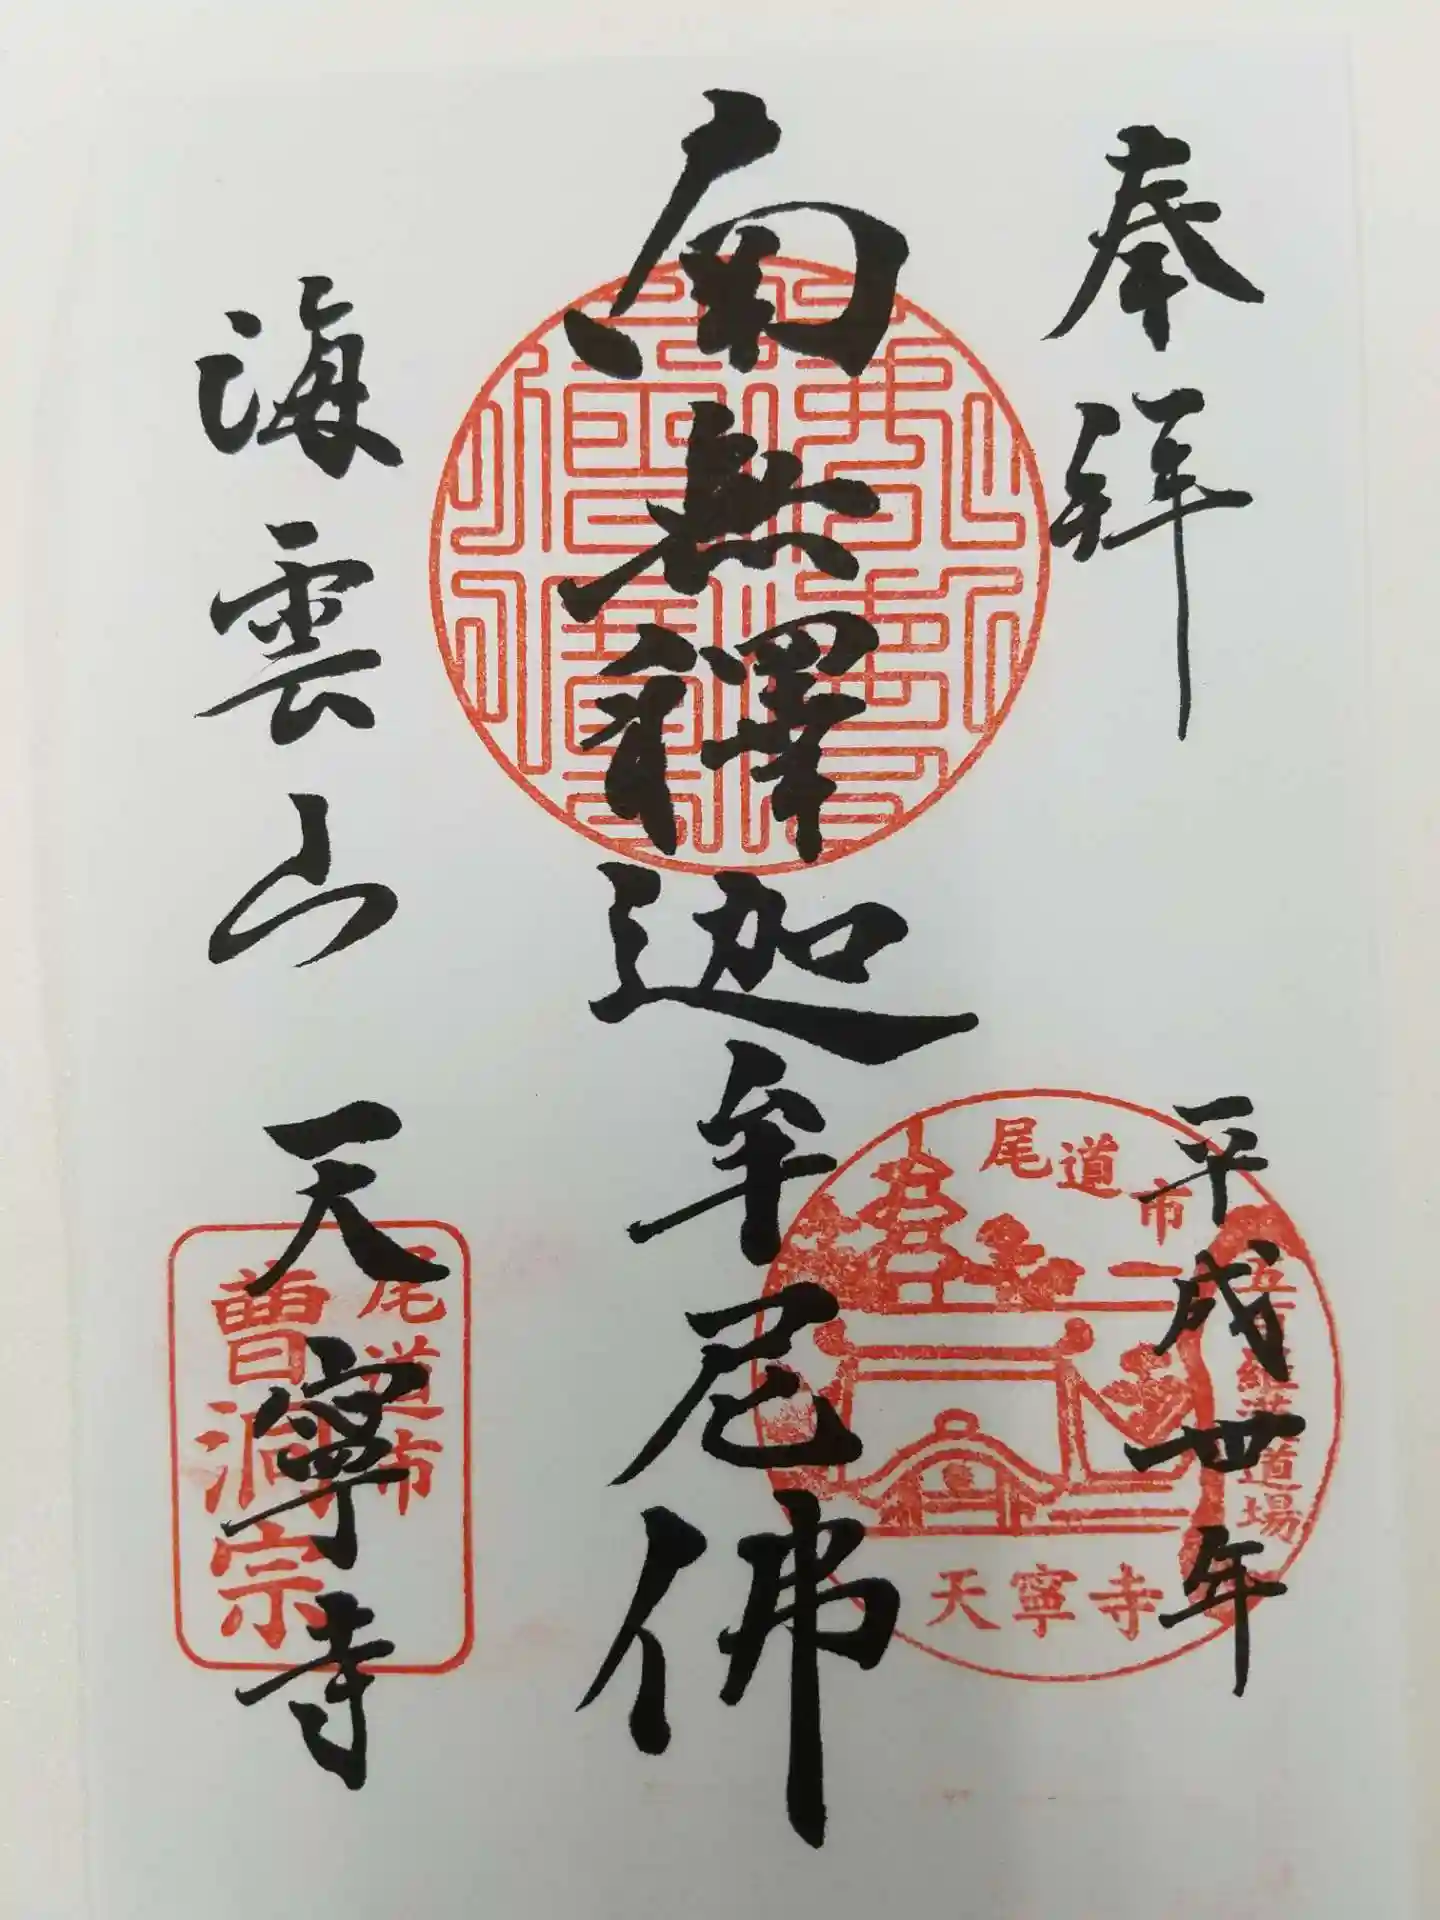 奉拜
平成卅年
南無釋迦牟尼佛
海雲山
天寧寺
尾道市
五百羅漢道場
天寧寺
尾道市
曹洞宗